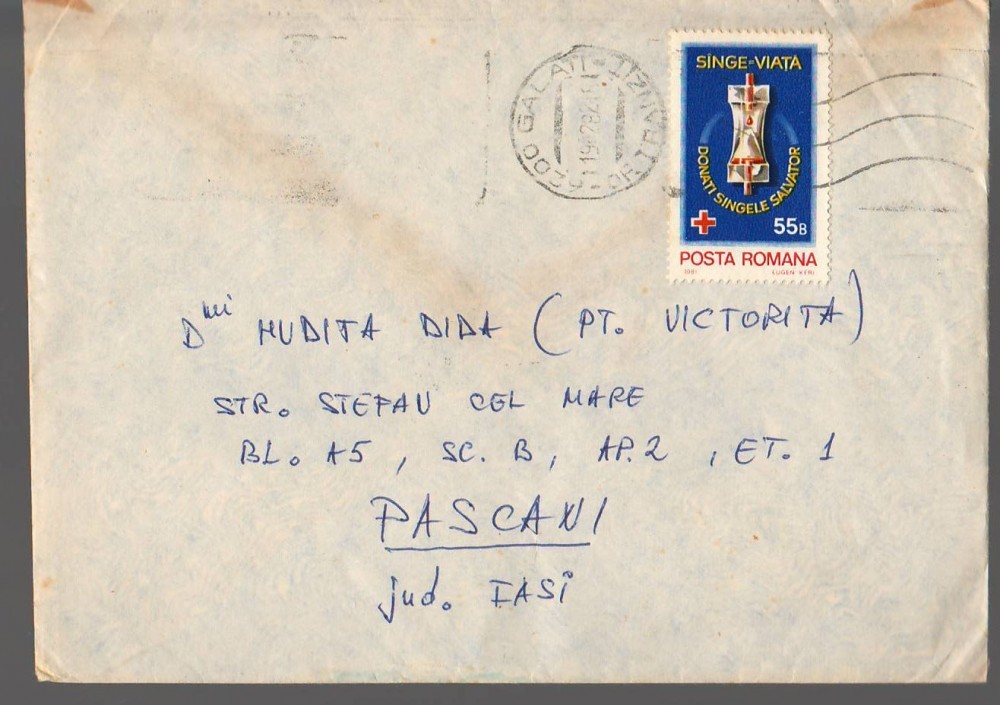 SÎNGE=VIAȚA
DONATI SINGELE SALVATOR
55B
POSTA ROMANA
1981 EUGEN
GALATI
Dnei HUDITA DIDA (PT. VICTORITA)
STR. STEFAN CEL MARE
BL. A5, SC. B, AP. 2, ET. 1
PASCANI
jud. IASI